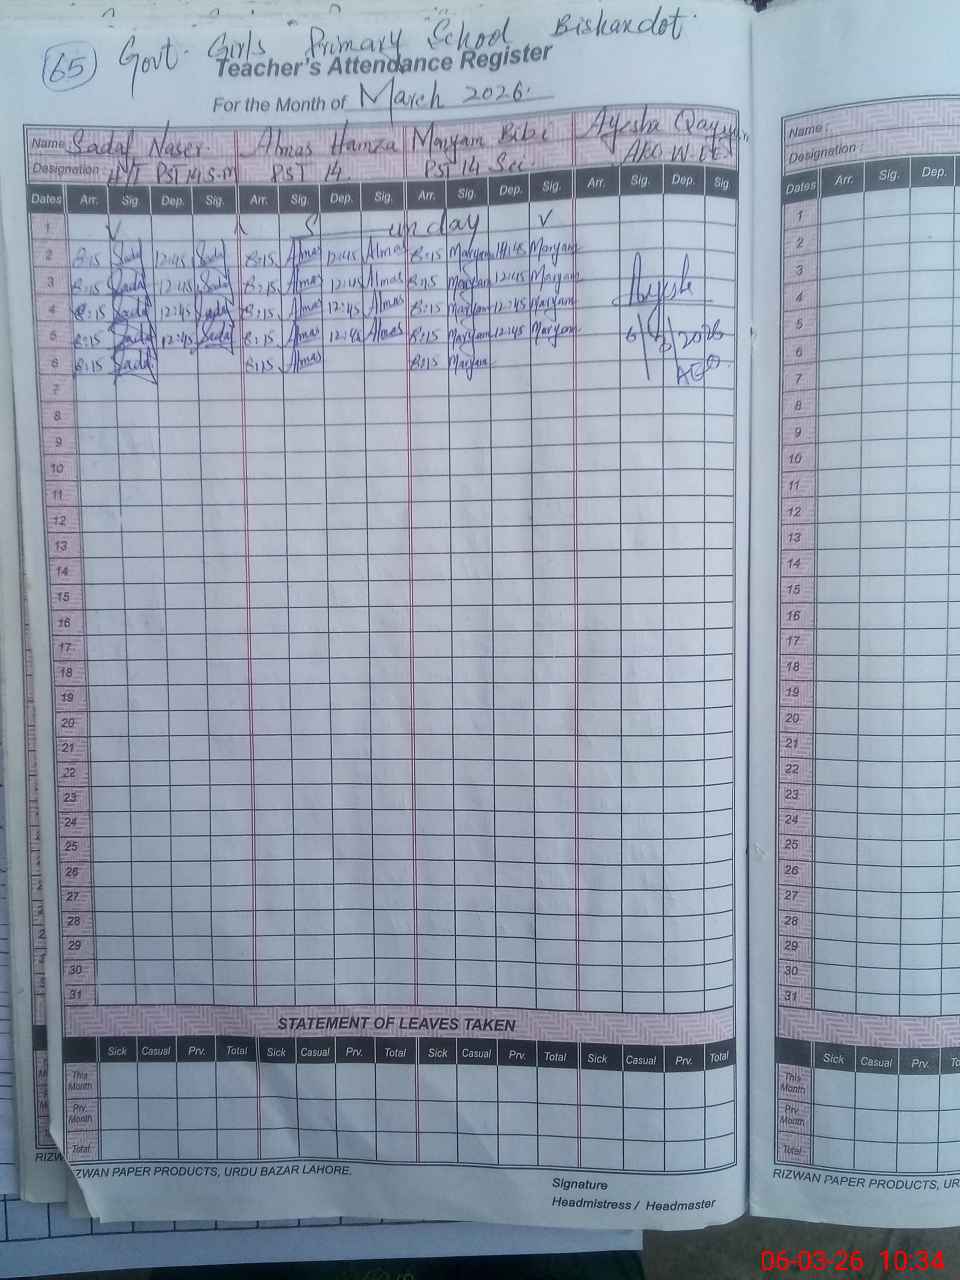 65 Govt. Girls Primary School Bishandot.
Teacher's Attendance Register
For the Month of March 2026.
Name Sadaf Naser. Almas Hamza Maryam Bibi Ayesha Qayyum
Designation : H/T PST 14 S.M PST 14. PST 14 Sci.
Dates Arr. Sig Dep. Sig. Arr. Sig. Dep. Sig. Arr. Sig. Dep. Sig. Arr. Sig. Dep. Sig
1 Sunday
2 8:15 Sadaf 12:45 Sadaf 8:15 Almas 12:45 Almas 8:15 Maryam 12:45 Maryam
3 8:15 Sadaf 12:45 Sadaf 8:15 Almas 12:45 Almas 8:15 Maryam 12:45 Maryam
4 8:15 Sadaf 12:45 Sadaf 8:15 Almas 12:45 Almas 8:15 Maryam 12:45 Maryam Ayesha
5 8:15 Sadaf 12:45 Sadaf 8:15 Almas 12:45 Almas 8:15 Maryam 12:45 Maryam 6/3/2026
6 8:15 Sadaf 8:15 Almas 8:15 Maryam AEO
7
8
9
10
11
12
13
14
15
16
17
18
19
20
21
22
23
24
25
26
27
28
29
30
31
STATEMENT OF LEAVES TAKEN
Sick Casual Prv. Total Sick Casual Prv. Total Sick Casual Prv. Total Sick Casual Prv. Total
This Month
Prv. Month
Total
ZWAN PAPER PRODUCTS, URDU BAZAR LAHORE.
Signature
Headmistress / Headmaster
Name :
Designation :
Dates Arr. Sig. Dep.
1
2
3
4
5
6
7
8
9
10
11
12
13
14
15
16
17
18
19
20
21
22
23
24
25
26
27
28
29
30
31
Sick Casual Prv.
This Month
Prv. Month
Total
RIZWAN PAPER PRODUCTS, UR
06-03-26 10:34